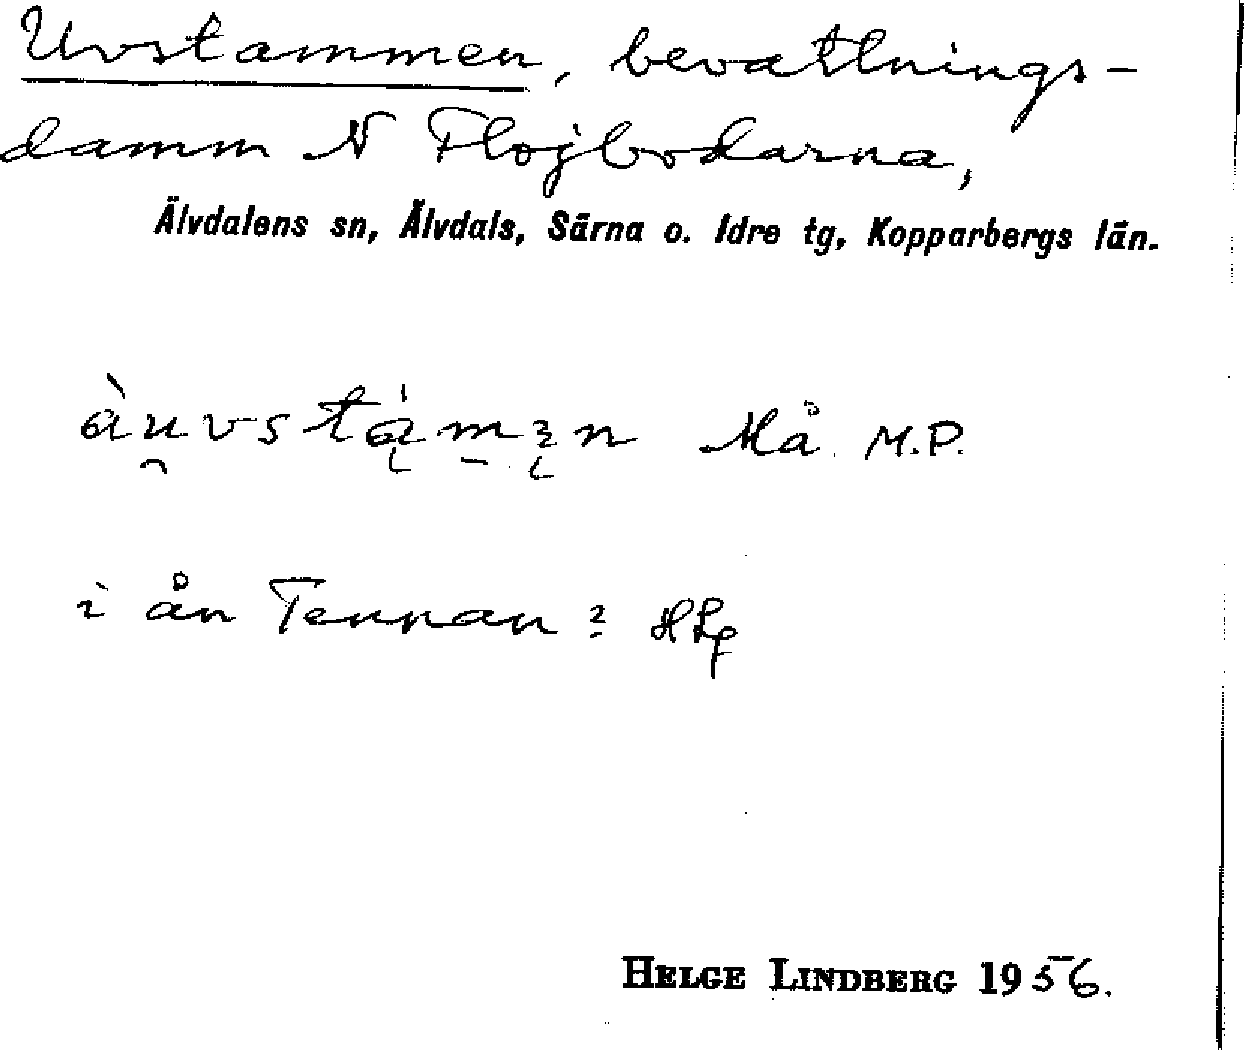 Uvstammen, bevattnings-
damm N Flojbodarna,
Älvdalens sn, Älvdals, Särna o. Idre tg, Kopparbergs län.
Må. M.P.
i ån Tennan? HLg
HELGE LINDBERG 1956.